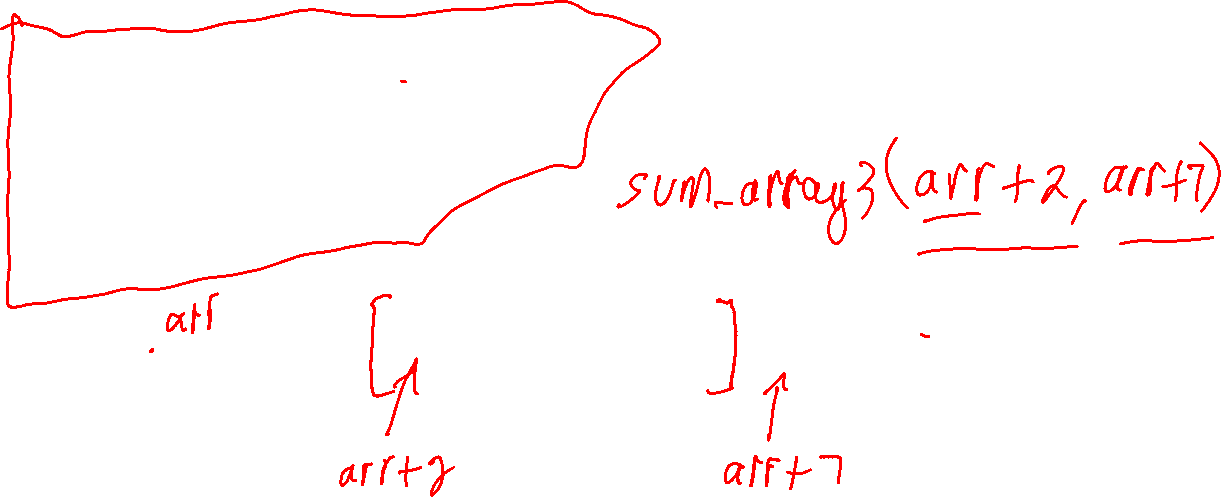 sum_array3(arr+2, arr+7)
arr
arr+2
arr+7